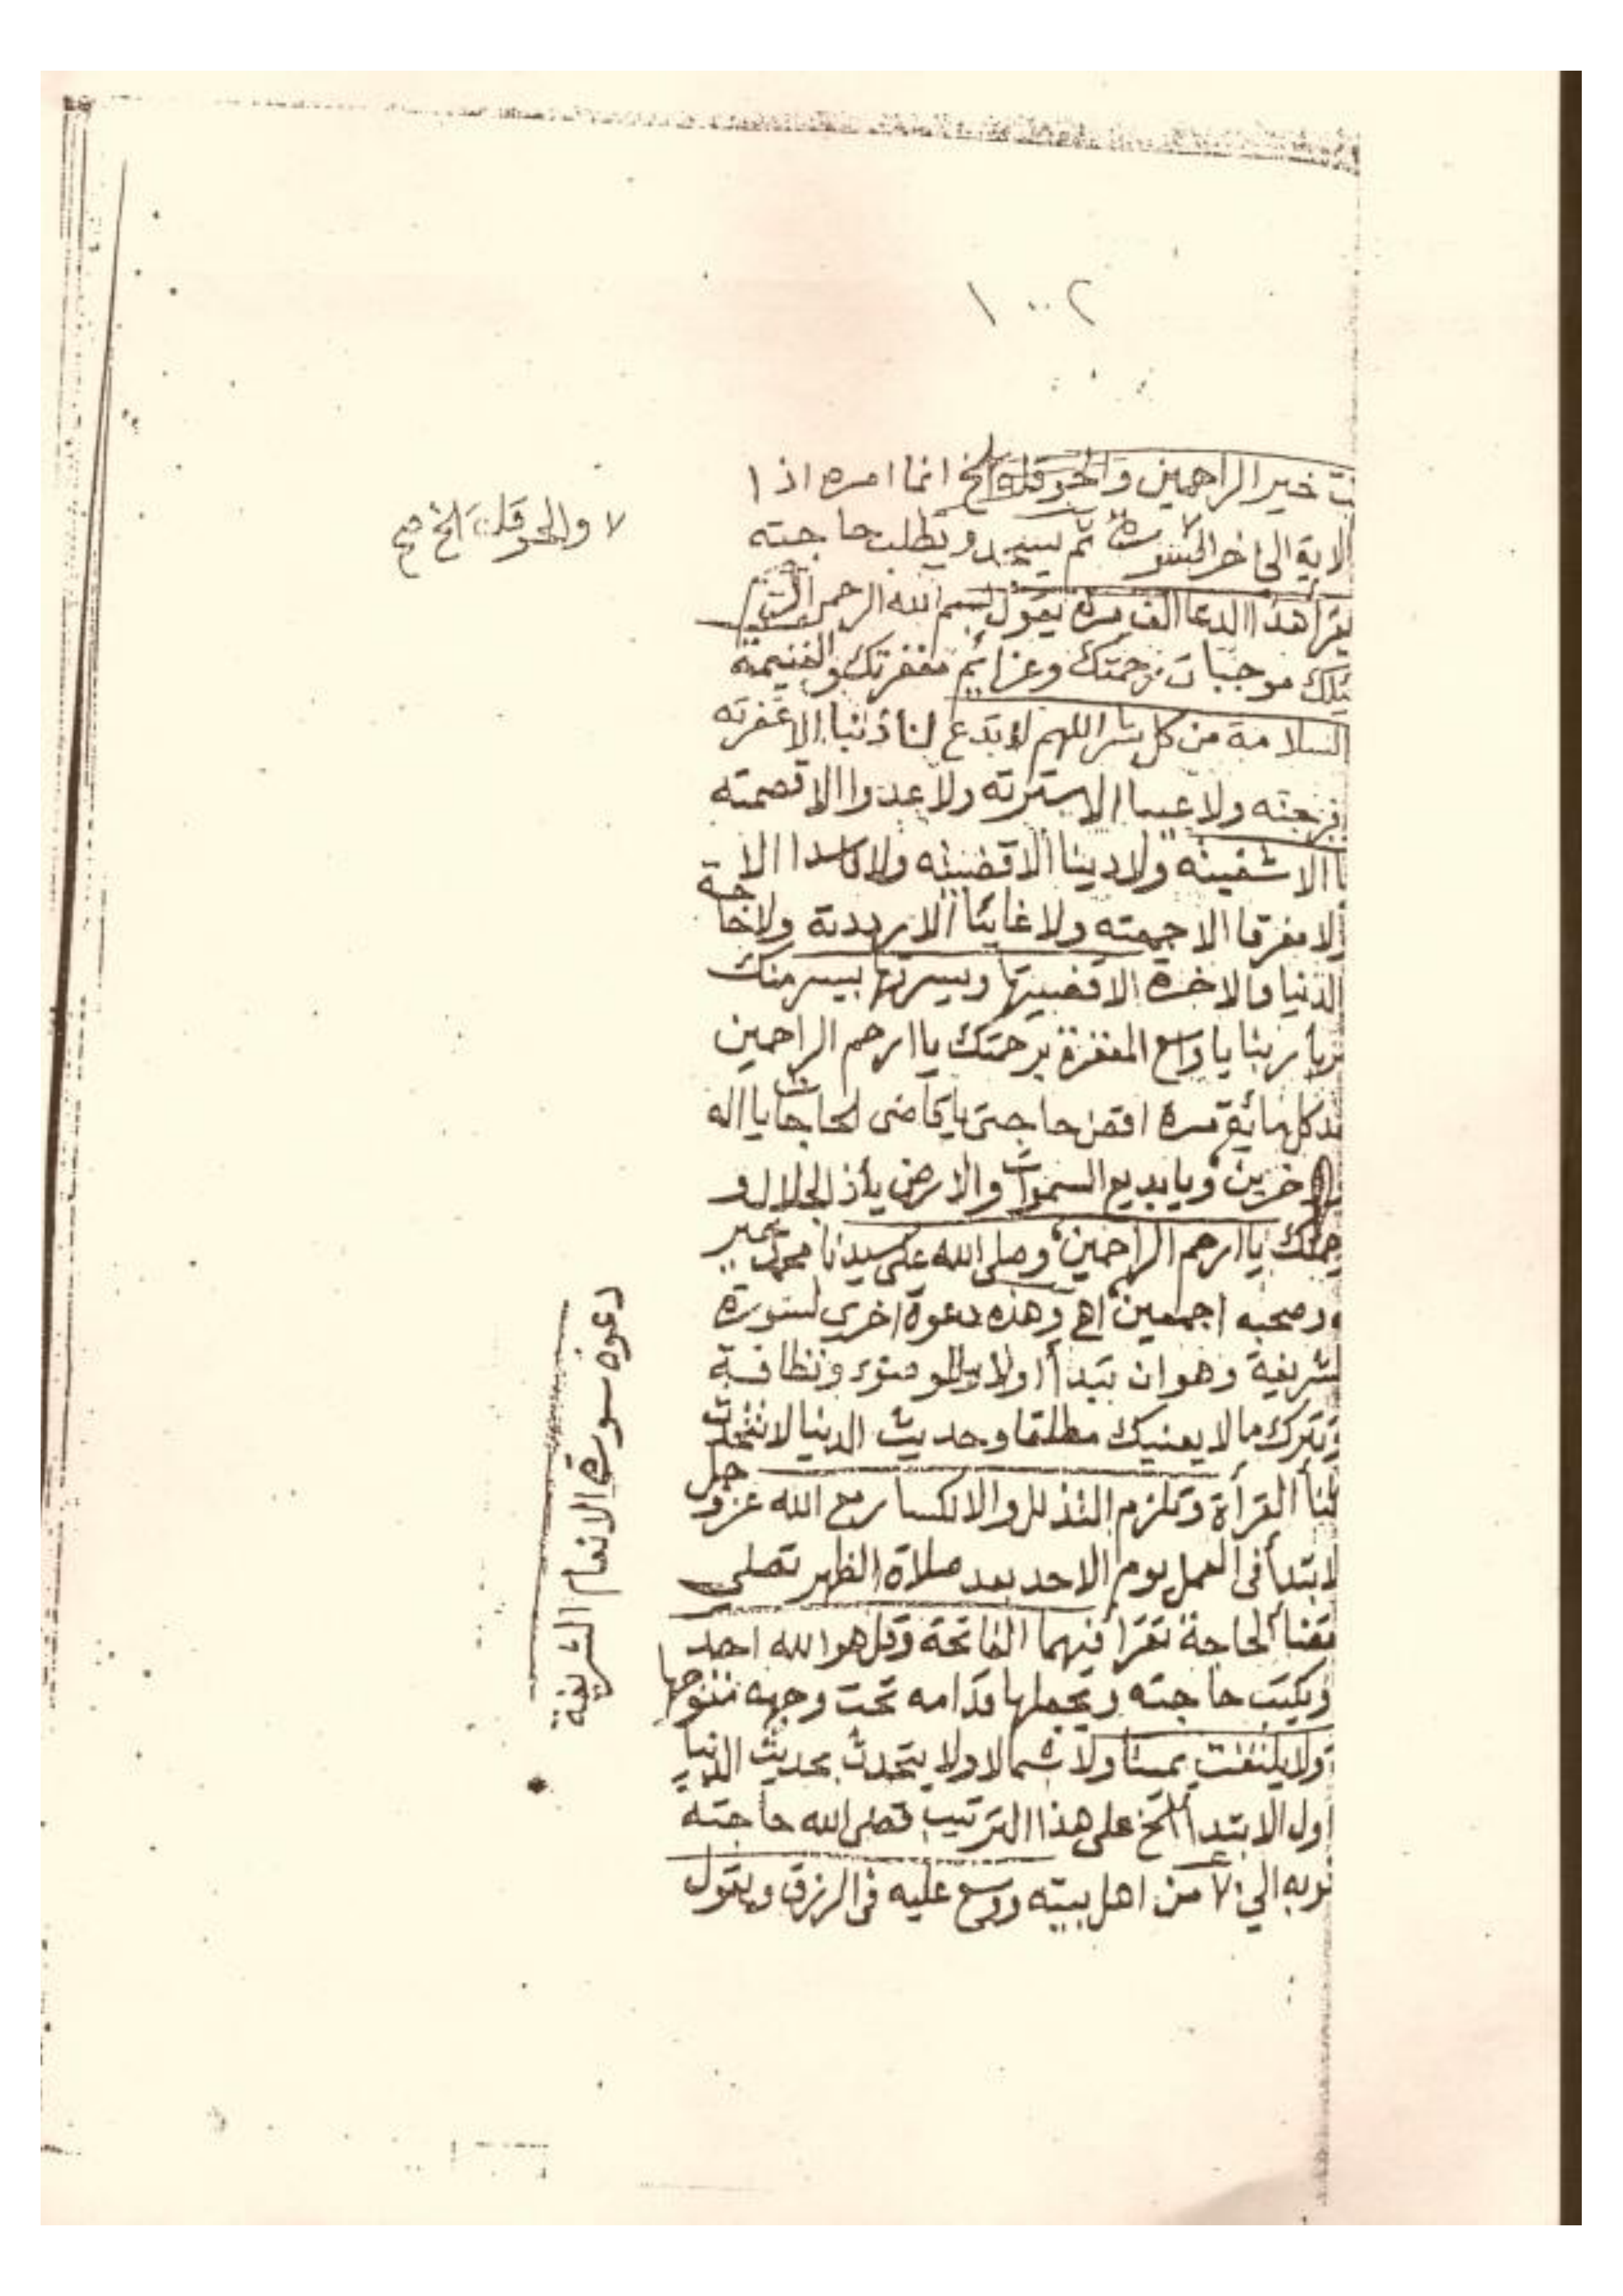 ٢..١
ت خير الراحمين والحوقلة الخ انما امره اذا
الاية الى اخر السورة ثم يسجد ويطلب حاجته
٧ والحوقلة الخ صح
يقرأ هذا الدعا الف مرة يقول بسم الله الرحمن الرحيم
ئلك موجبات رحمتك وعزائم مغفرتك والغنيمة
السلامة من كل شر اللهم لا تدع لنا ذنبا الا غفرته
فرجته ولا عيبا الا سترته ولا عدوا الا قصمته
ا الا شفيته ولا دينا الا قضيته ولا كاسدا الا
ولا مفرقا الا جمعته ولا غائبا الا رددته ولا حاجة
الدنيا والاخرة الا قضيتها ويسرتها بيسر منك
يا ربنا يا واسع المغفرة برحمتك يا ارحم الراحمين
كل مائة مرة اقض حاجتى يا قاضى الحاجات يا اله
الاخرين ويا بديع السموات والارض ياذا الجلال و
حمتك يا ارحم الراحمين وصلى الله على سيدنا محمد
ه وصحبه اجمعين اهـ وهذه دعوة اخرى لسورة
لشريفة وهو ان تبتدأ اولا بالوضوء ونظافة
وتترك ما لا يعنيك مطلقا وحديث الدنيا لا تتحدث
ثنأ القرأة وتلزم التذلل والانكسار مع الله عز وجل
لابتدأ فى العمل يوم الاحد بعد صلاة الظهر تصلى
بقضأ الحاجة تقرأ فيهما الفاتحة وقل هو الله احد
ويكتب حاجته ويجعلها قدامه تحت وجهه مفتوحها
ولا يلتفت يمينا ولا شمالا ولا يتحدث بحديث الدنيا
اول الابتدأ الخ على هذا الترتيب قضى الله حاجته
نوبه الي ٧٠ من اهل بيته ووسع عليه فى الرزق ويقول
دعوة سورة الانعام الشريفة